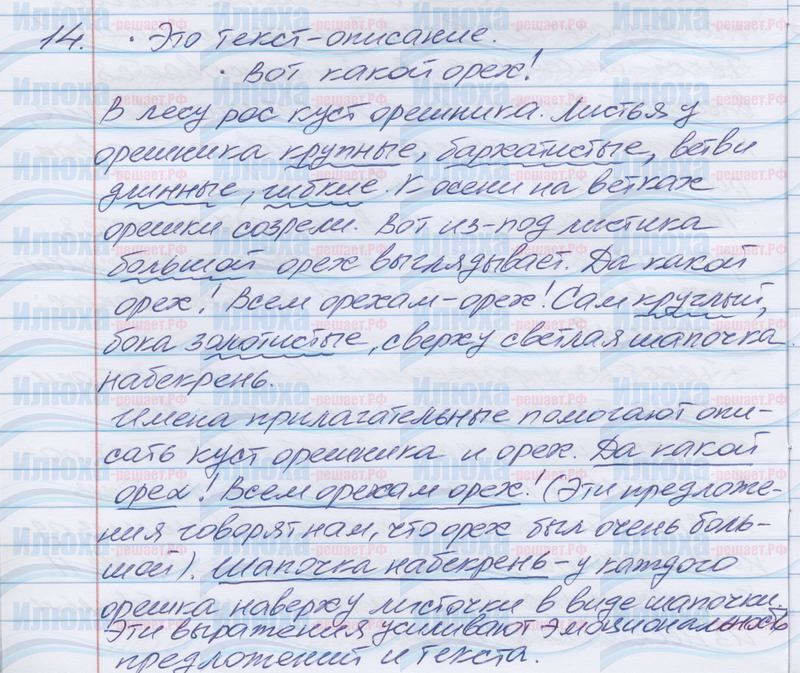 14. · Это текст-описание.
· Вот какой орех!
В лесу рос куст орешника. Листья у
орешника крупные, бархатистые, ветви
длинные, гибкие. К осени на ветках
орешки созрели. Вот из-под листика
большой орех выглядывает. Да какой
орех! Всем орехам-орех! Сам круглый,
бока золотистые, сверху светлая шапочка
набекрень.
Имена прилагательные помогают опи-
сать куст орешника и орех. Да какой
орех! Всем орехам орех! (Эти предложе-
ния говорят нам, что орех был очень боль-
шой). Шапочка набекрень - у каждого
орешка наверху листочки в виде шапочки.
Эти выражения усиливают эмоциональность
предложений и текста.